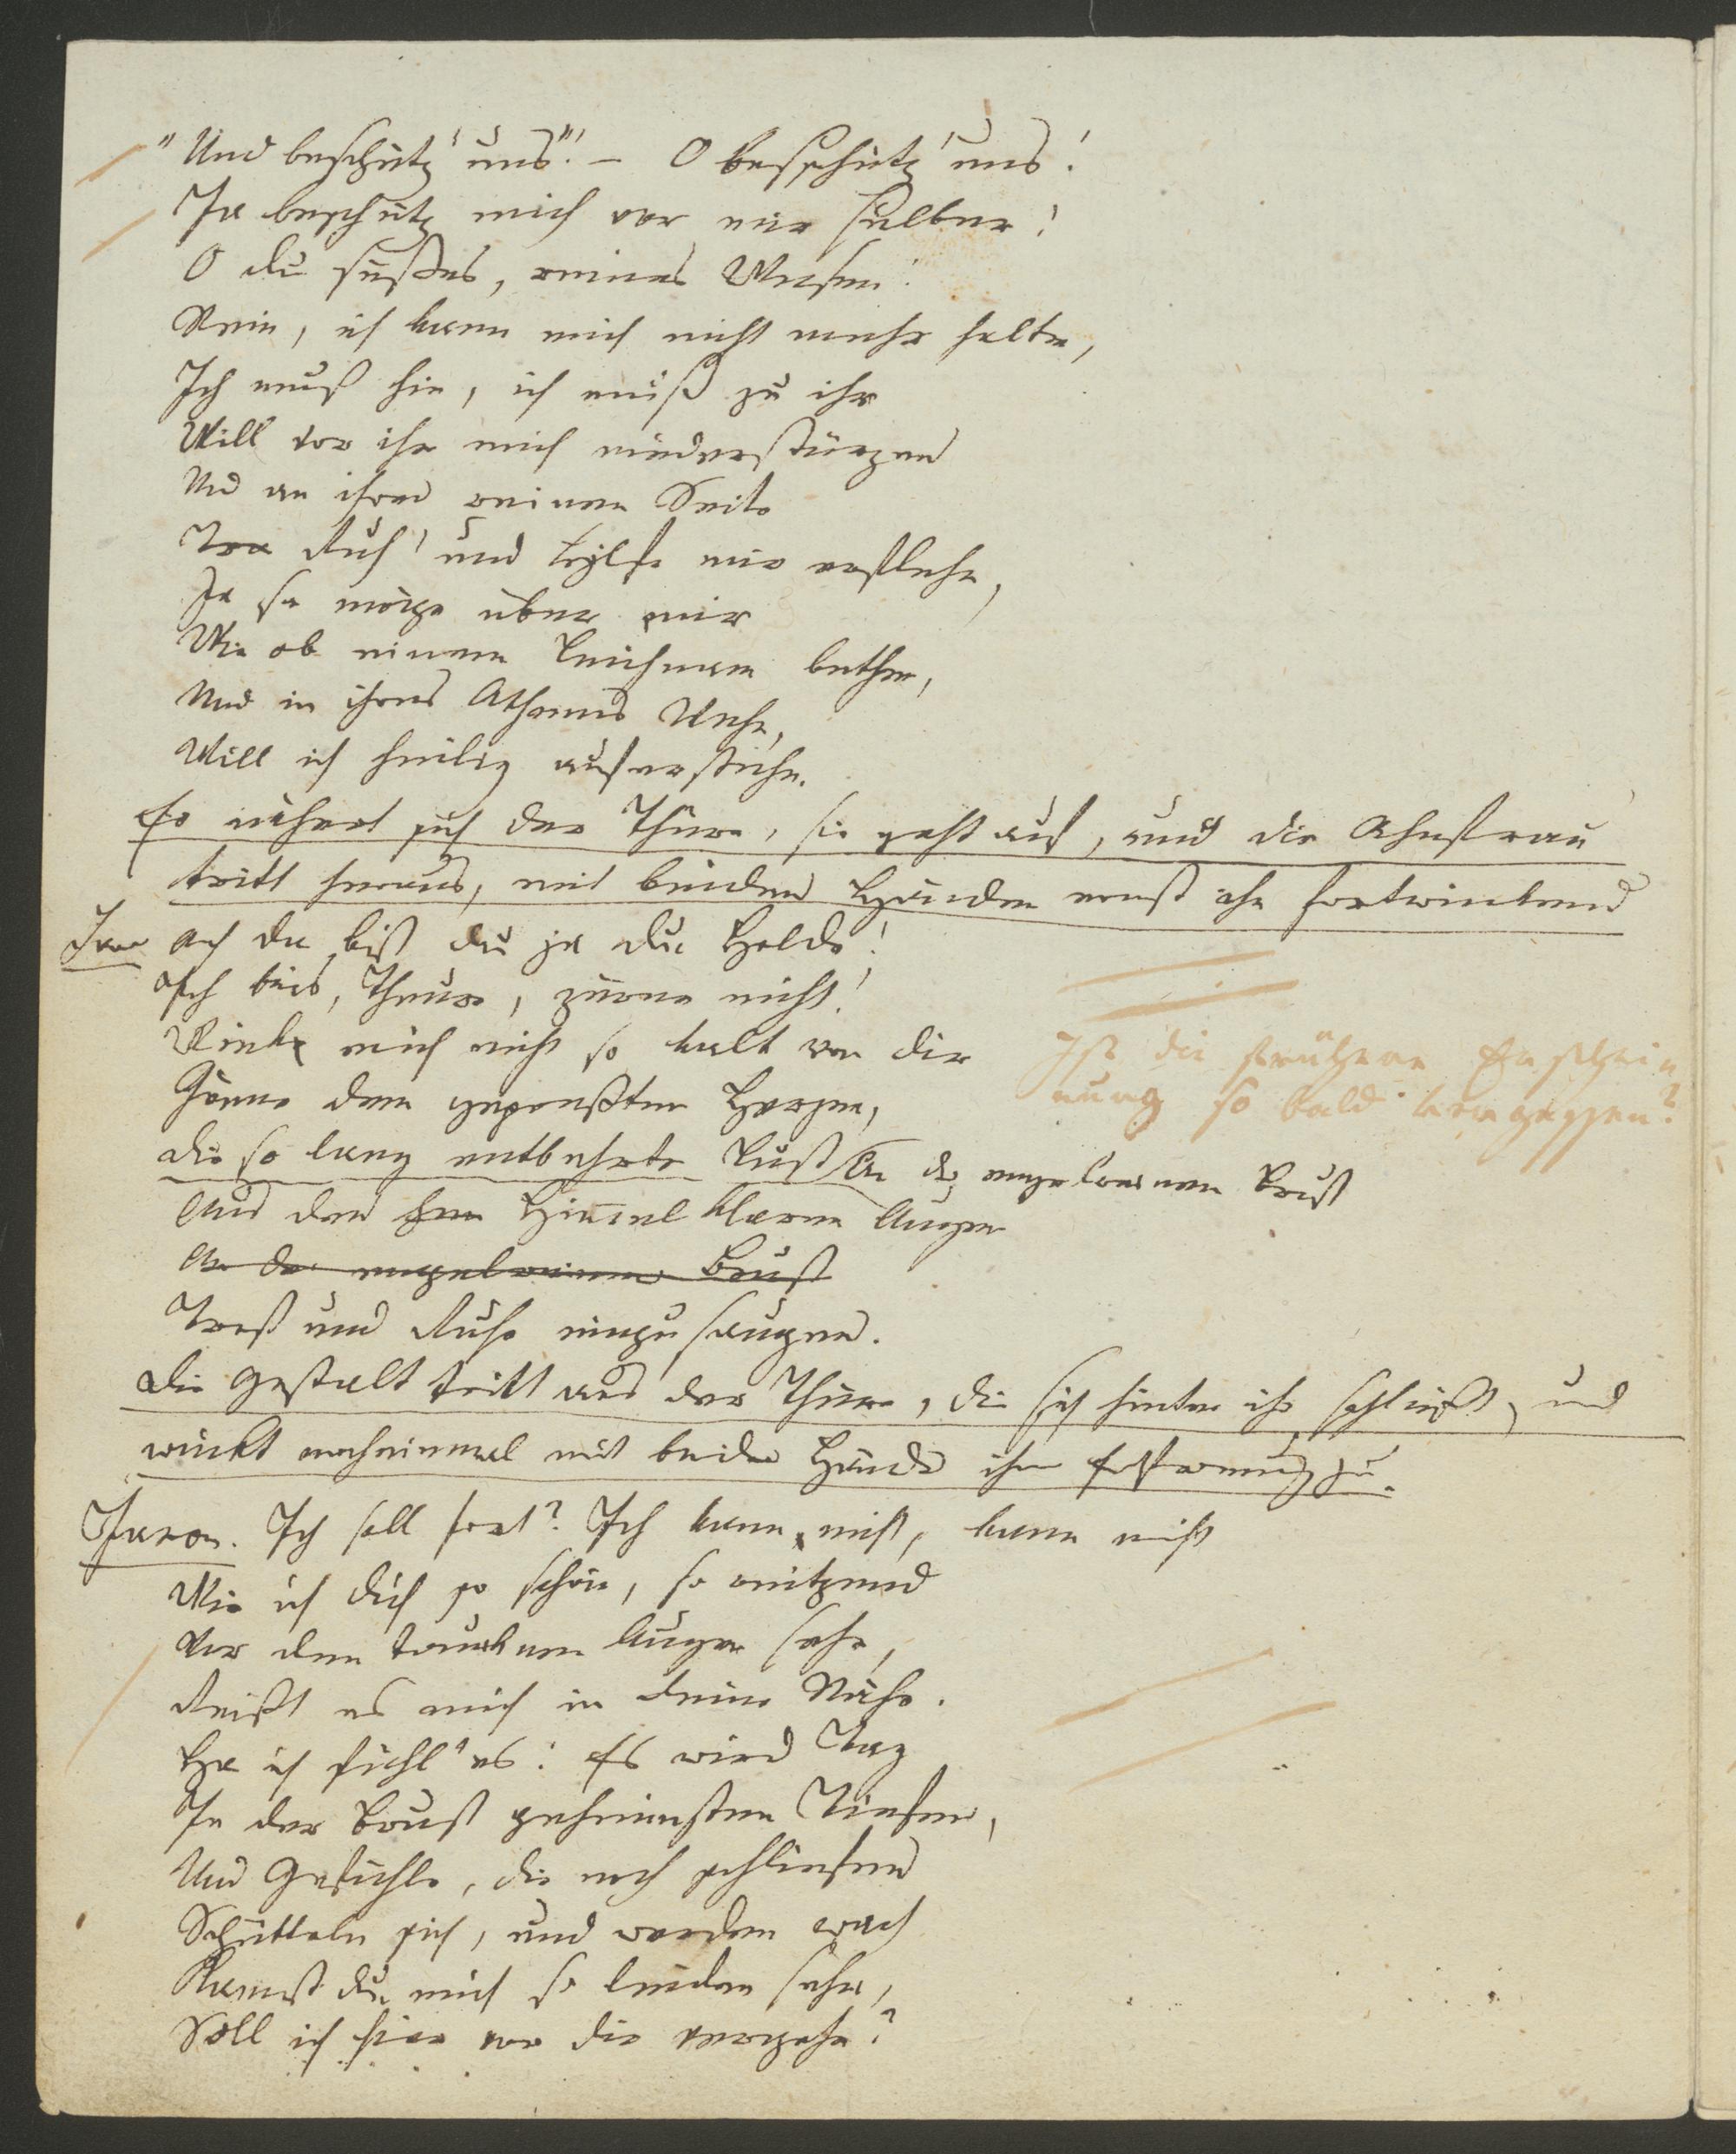 "Und beschütz' uns"! – O beschütz' uns!
Ja beschütz mich vor mir selber!
O du süßes, reines Wesen!
Nein, ich kann mich nicht mehr halten,
Ich muß hin, ich muß zu ihr
Will vor ihr mich niederstürzen
Und an ihrer reinen Seite
Ruh' und Hülfe mir erflehn,
Ja sie möge über mir
Wie ob einem Leichnam bethen,
Und in ihres Athems Wehn,
Will ich heilig auferstehn.
Er nähert sich der Thüre, sie geht auf, und die Ahnfrau
tritt heraus, mit beiden Händen ernst ihn fortwinkend
Jar Ach da bist du ja du Holde!
Ich bins, Theure, zürne nicht!
Winke mich nicht so kalt von dir
Gönne dem gepreßten Herzen,
die so lang entbehrte Lust An der engelreinen Brust
Aus den Himmel klaren Augen
An der engelreinen Brust
Trost und Ruhe einzusaugen.
Die Gestalt tritt aus der Thüre, die sich hinter ihr schließt, und
winkt nocheinmal mit beiden Händen ihm Entfernung zu.
Jarom. Ich soll fort? Ich kann nicht, kann nicht
Wie ich dich so schön, so reitzend
Vor den trunknen Augen sehe,
Reißt es mich in deine Nähe.
Ha ich fühl' es! Es wird Tag
In der Brust geheimsten Tiefen,
Und Gefühle, die noch schliefen
Schütteln sich, und werden wach
Kannst du mich so leiden sehn,
Soll ich hier vor dir vergehn?
Ist die frühere Erschein
nung so bald vergessen?